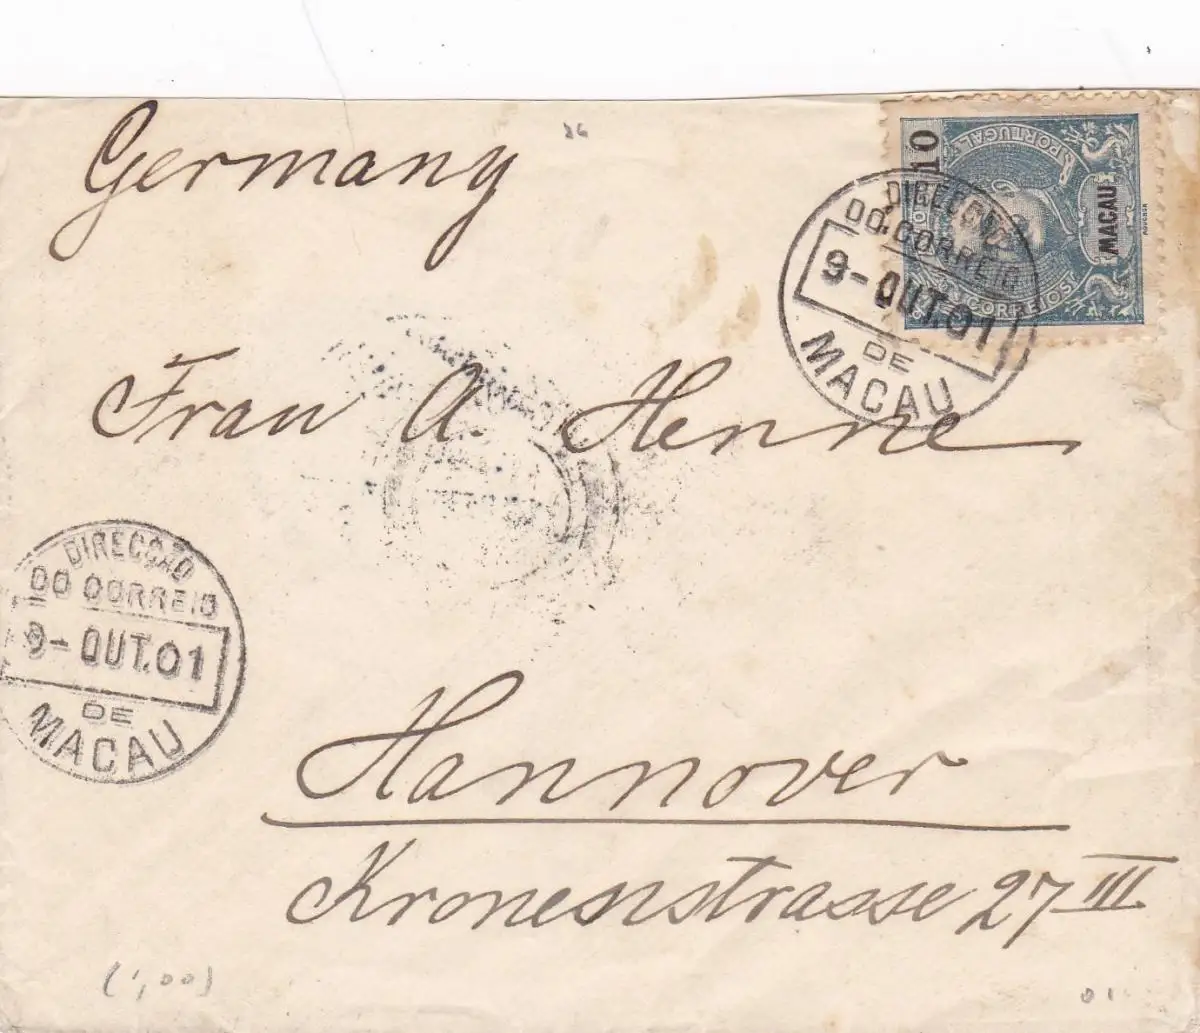 Germany
10
PORTUGAL
MACAU
CORREIOS
DIRECÇÃO
DO CORREIO
9-OUT.01
DE
MACAU
Frau A. Henne
DIRECÇÃO
DO CORREIO
9-OUT.01
DE
MACAU
Hannover
Kronenstrasse 27 III
(1,00)
01